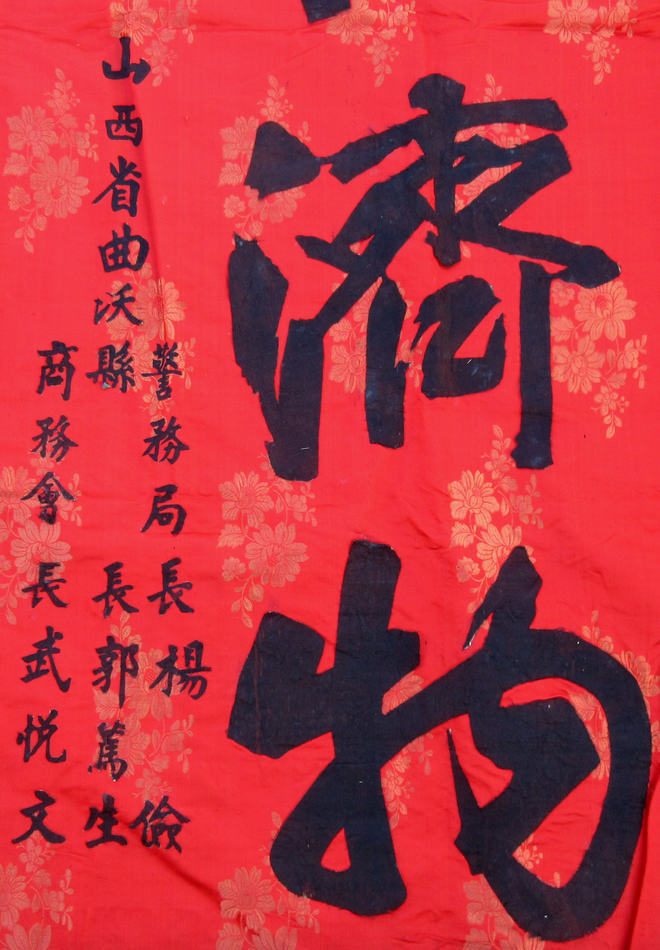 濟物
警務局長楊儉
山西省曲沃縣長郭篤生
商務會長武悅文